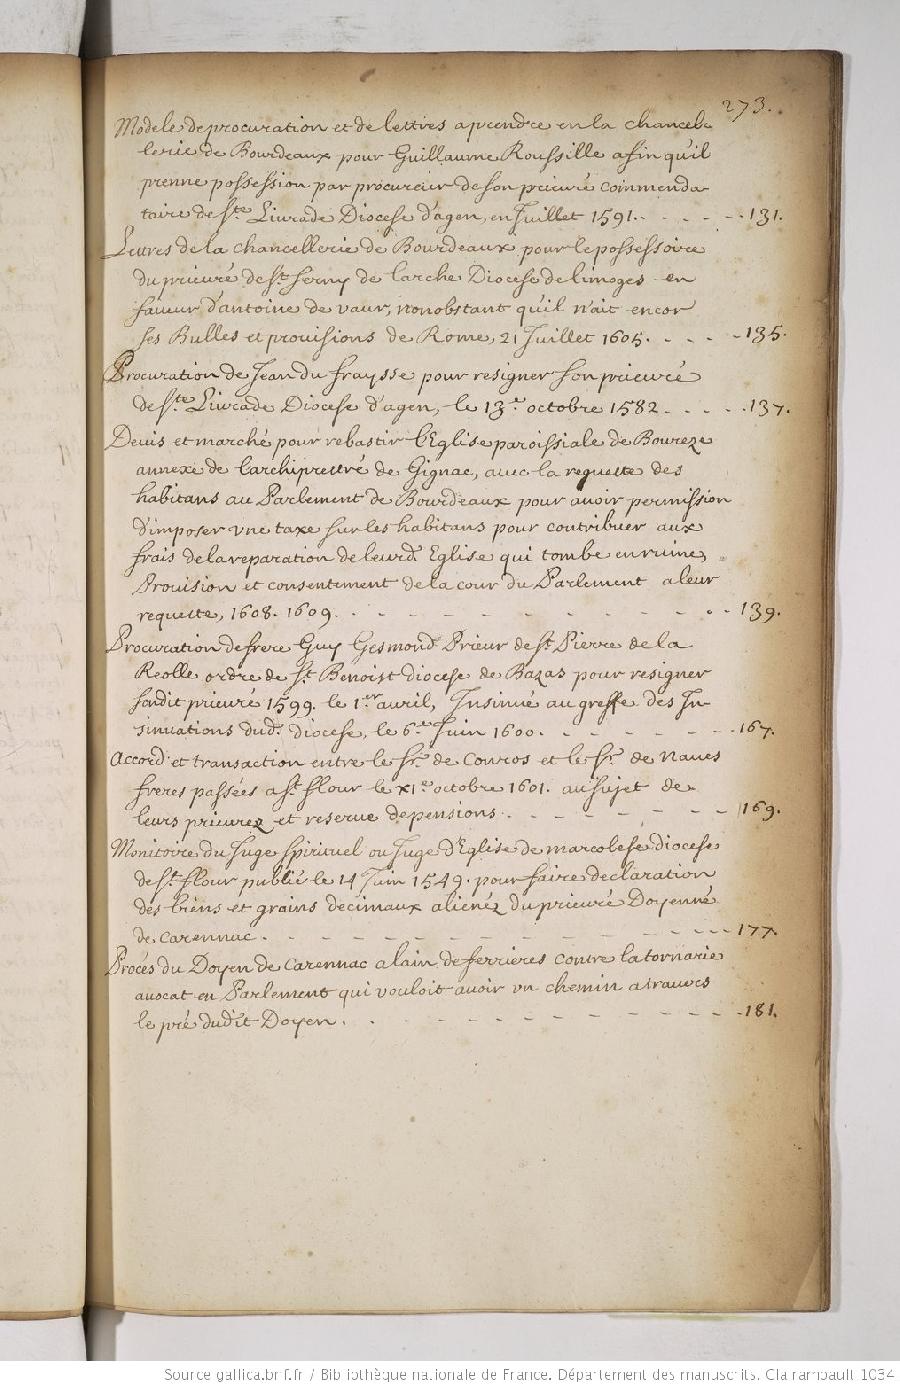 273.
Modele de procuration et de lettres a prendre en la chancel-
lerie de Bourdeaux pour Guillaume Roussille afin qu'il
prenne possession par procureur de son prieuré commenda-
taire de Ste Livrade Diocese d'agen, en Juillet 1591. - - - - - 131.
Lettres de la chancellerie de Bourdeaux pour le possessoire
du prieuré de St. serny de larche Diocese de limoges en
faveur d'antoine de vaur, nonobstant qu'il n'ait encor
ses Bulles et provisions de Rome, 21 Juillet 1605. - - - - 135.
Procuration de Jean du fraysse pour resigner son prieuré
de Ste Livrade Diocese d'agen, le 13.e octobre 1582. - - - - 137.
Devis et marché pour rebastir l'Eglise paroissiale de Boureze
annexe de l'archipretré de Gignac, avec la requeste des
habitans au Parlement de Bourdeaux pour avoir permission
d'imposer vne taxe sur les habitans pour contribuer aux
frais de la reparation de leurd. Eglise qui tombe en ruine,
Provision et consentement de la cour du Parlement a leur
requeste, 1608. 1609. - - - - - - - - - - 139.
Procuration de frere Guy Gesmond Prieur de St. Pierre de la
Reolle ordre de St. Benoist diocese de Bazas pour resigner
sondit prieuré 1599. le 1.er avril, Insinué au greffe des In-
sinuations dud. diocese, le 6.e Juin 1600. - - - - - - 167.
Accord et transaction entre le Sr. de Couros et le Sr. de Naves
freres passées a St. flour le XI.e octobre 1601. au sujet de
leurs prieurez et reserve de pensions. - - - - - - - 169.
Monitoire du Juge spirituel ou Juge d'Eglise de marcolese diocese
de St. flour publié le 14 Juin 1549. pour faire declaration
des biens et grains decimaux alienez du prieuré Doyenné
de Carennac. - - - - - - - - - - - - 177.
Procés du Doyen de Carennac alain de ferrieres contre la tornarie
avocat en Parlement qui vouloit avoir vn chemin a travers
le pré dudit Doyen. - - - - - - - - - - 181.
Source gallica.bnf.fr / Bibliothèque nationale de France. Département des manuscrits. Clairambault 1034